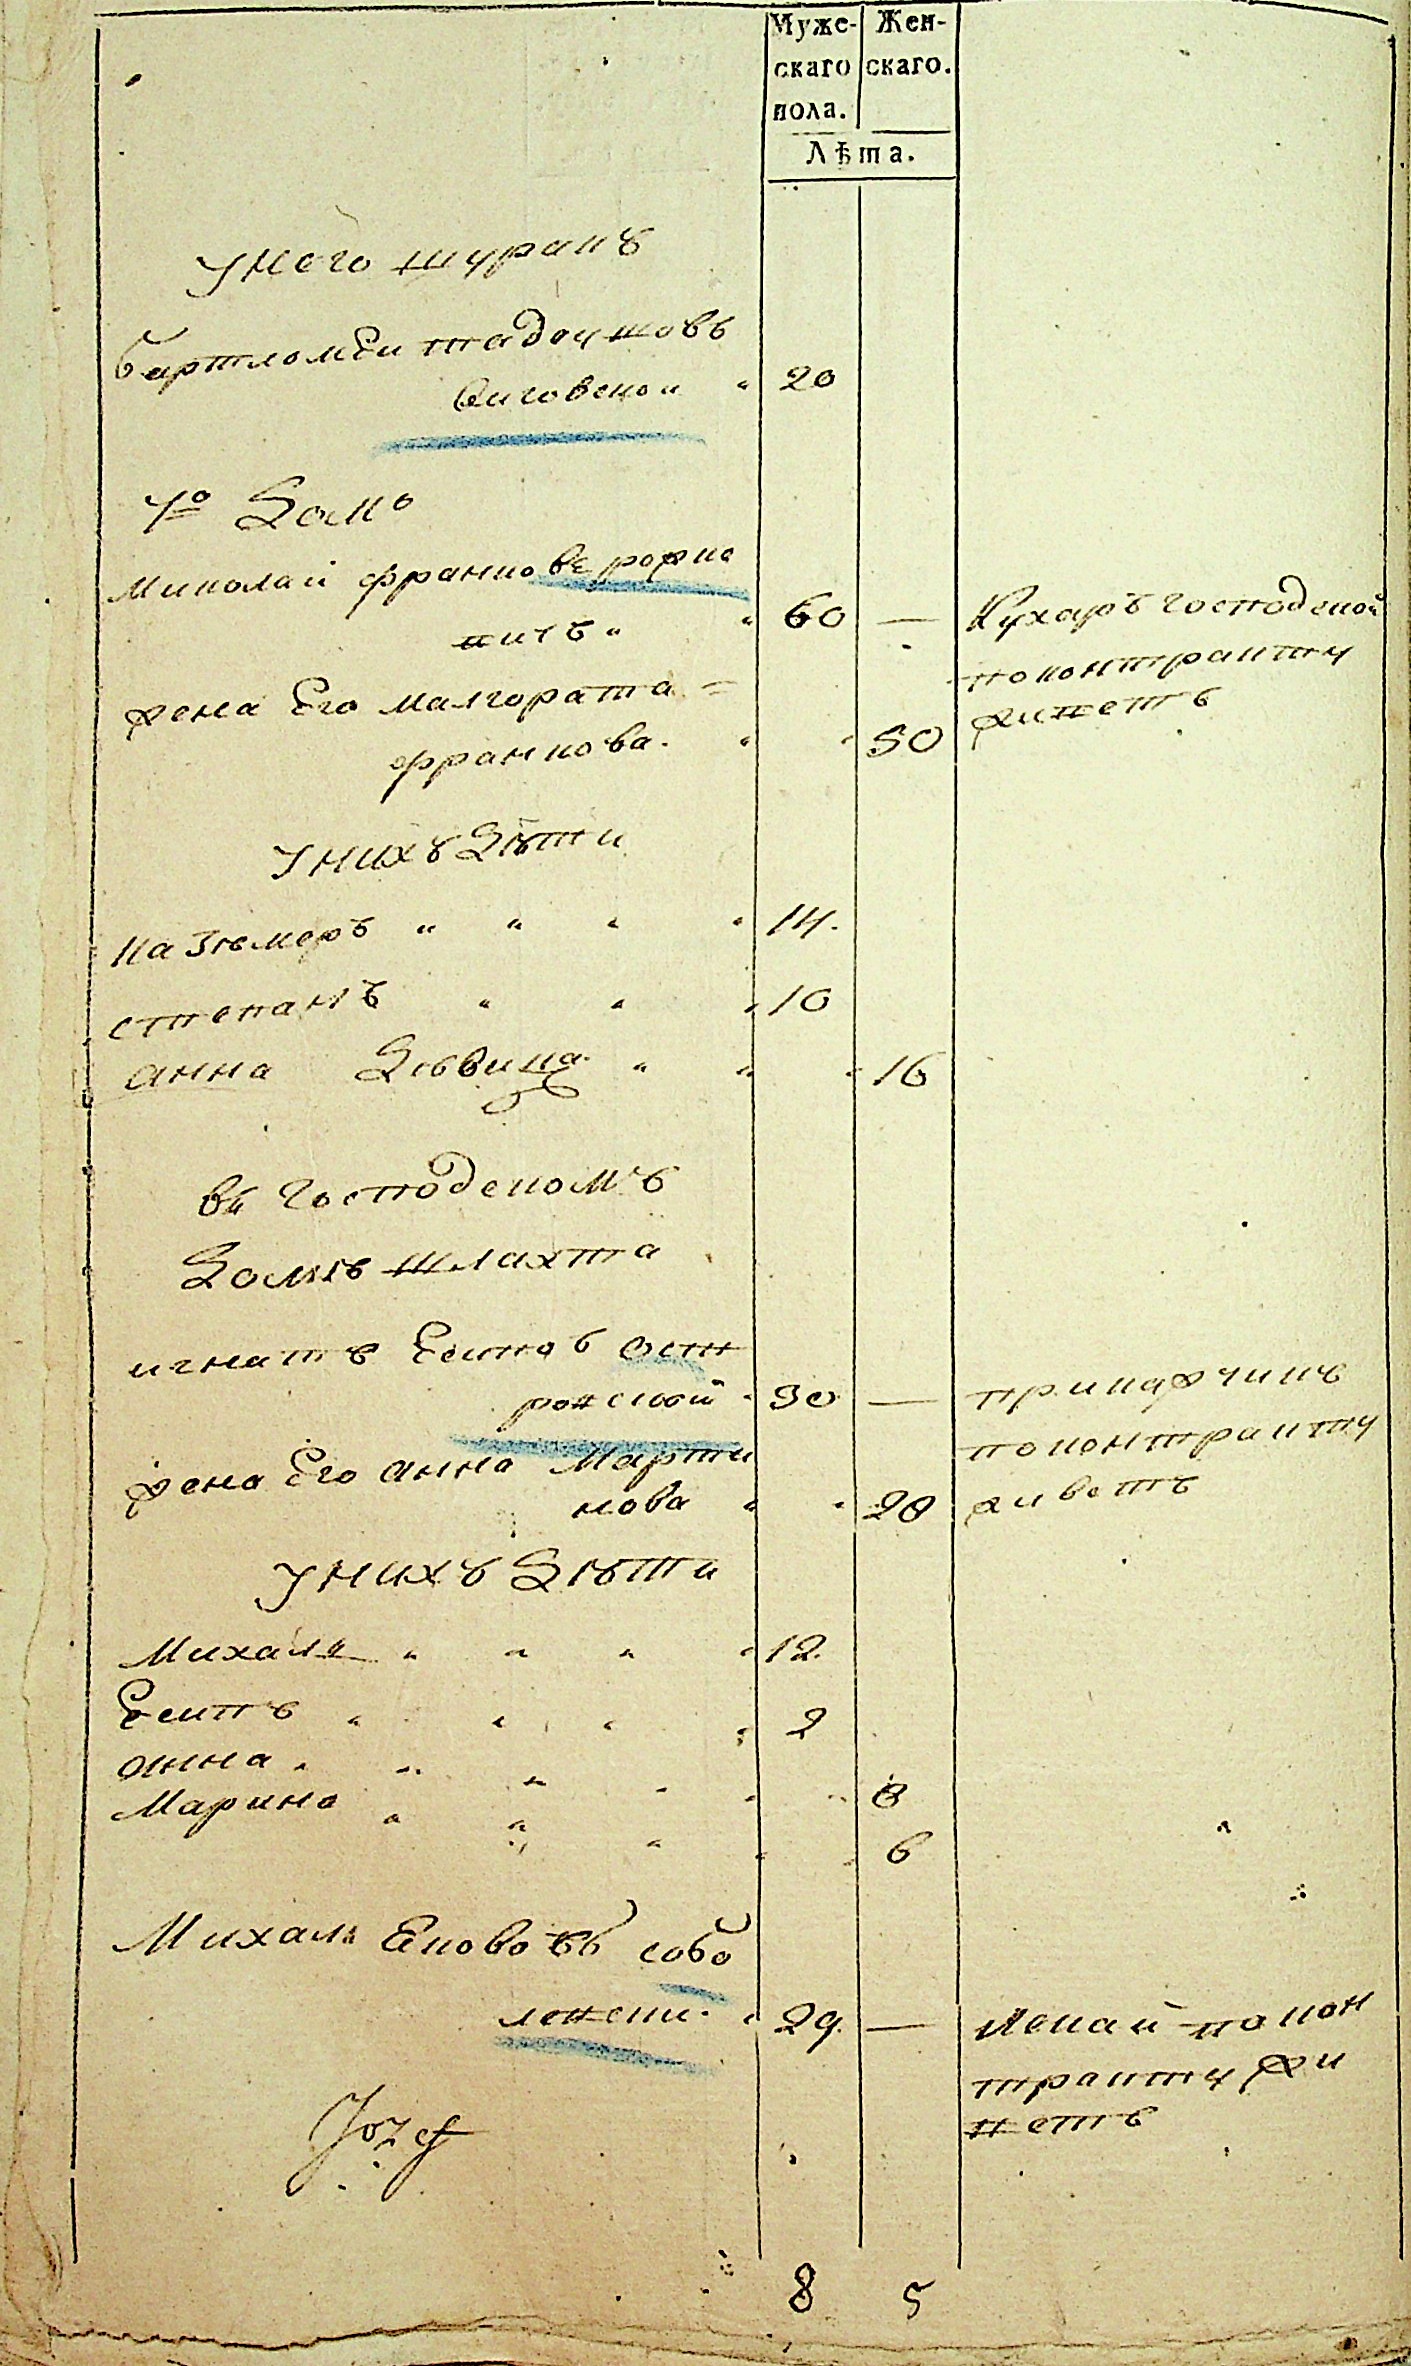 Муже-
скаго
пола.
Жен-
скаго.
Лѣта.
У него шуринъ
бартломеи тадеушовъ
20
4º Домъ
Миколаи франковъ рожно
вичъ
60 —
Кухаръ господской
по контракту
живетъ
жена Его малгората
франкова.
50
У нихъ Дѣти
казѣмеръ 14.
степанъ 10
анна Дѣвица 16
въ господскомъ
Домѣ шлахта
игнатъ Есиповъ
30 —
по контракту
живетъ
жена Его анна Марти
нова 28
У нихъ Дѣти
Михалъ 12.
Есипъ 2
анна 8
Марина 6
Михалъ собо
29. —
Лекай по кон
тракту жи
ветъ
Jozef
8 5